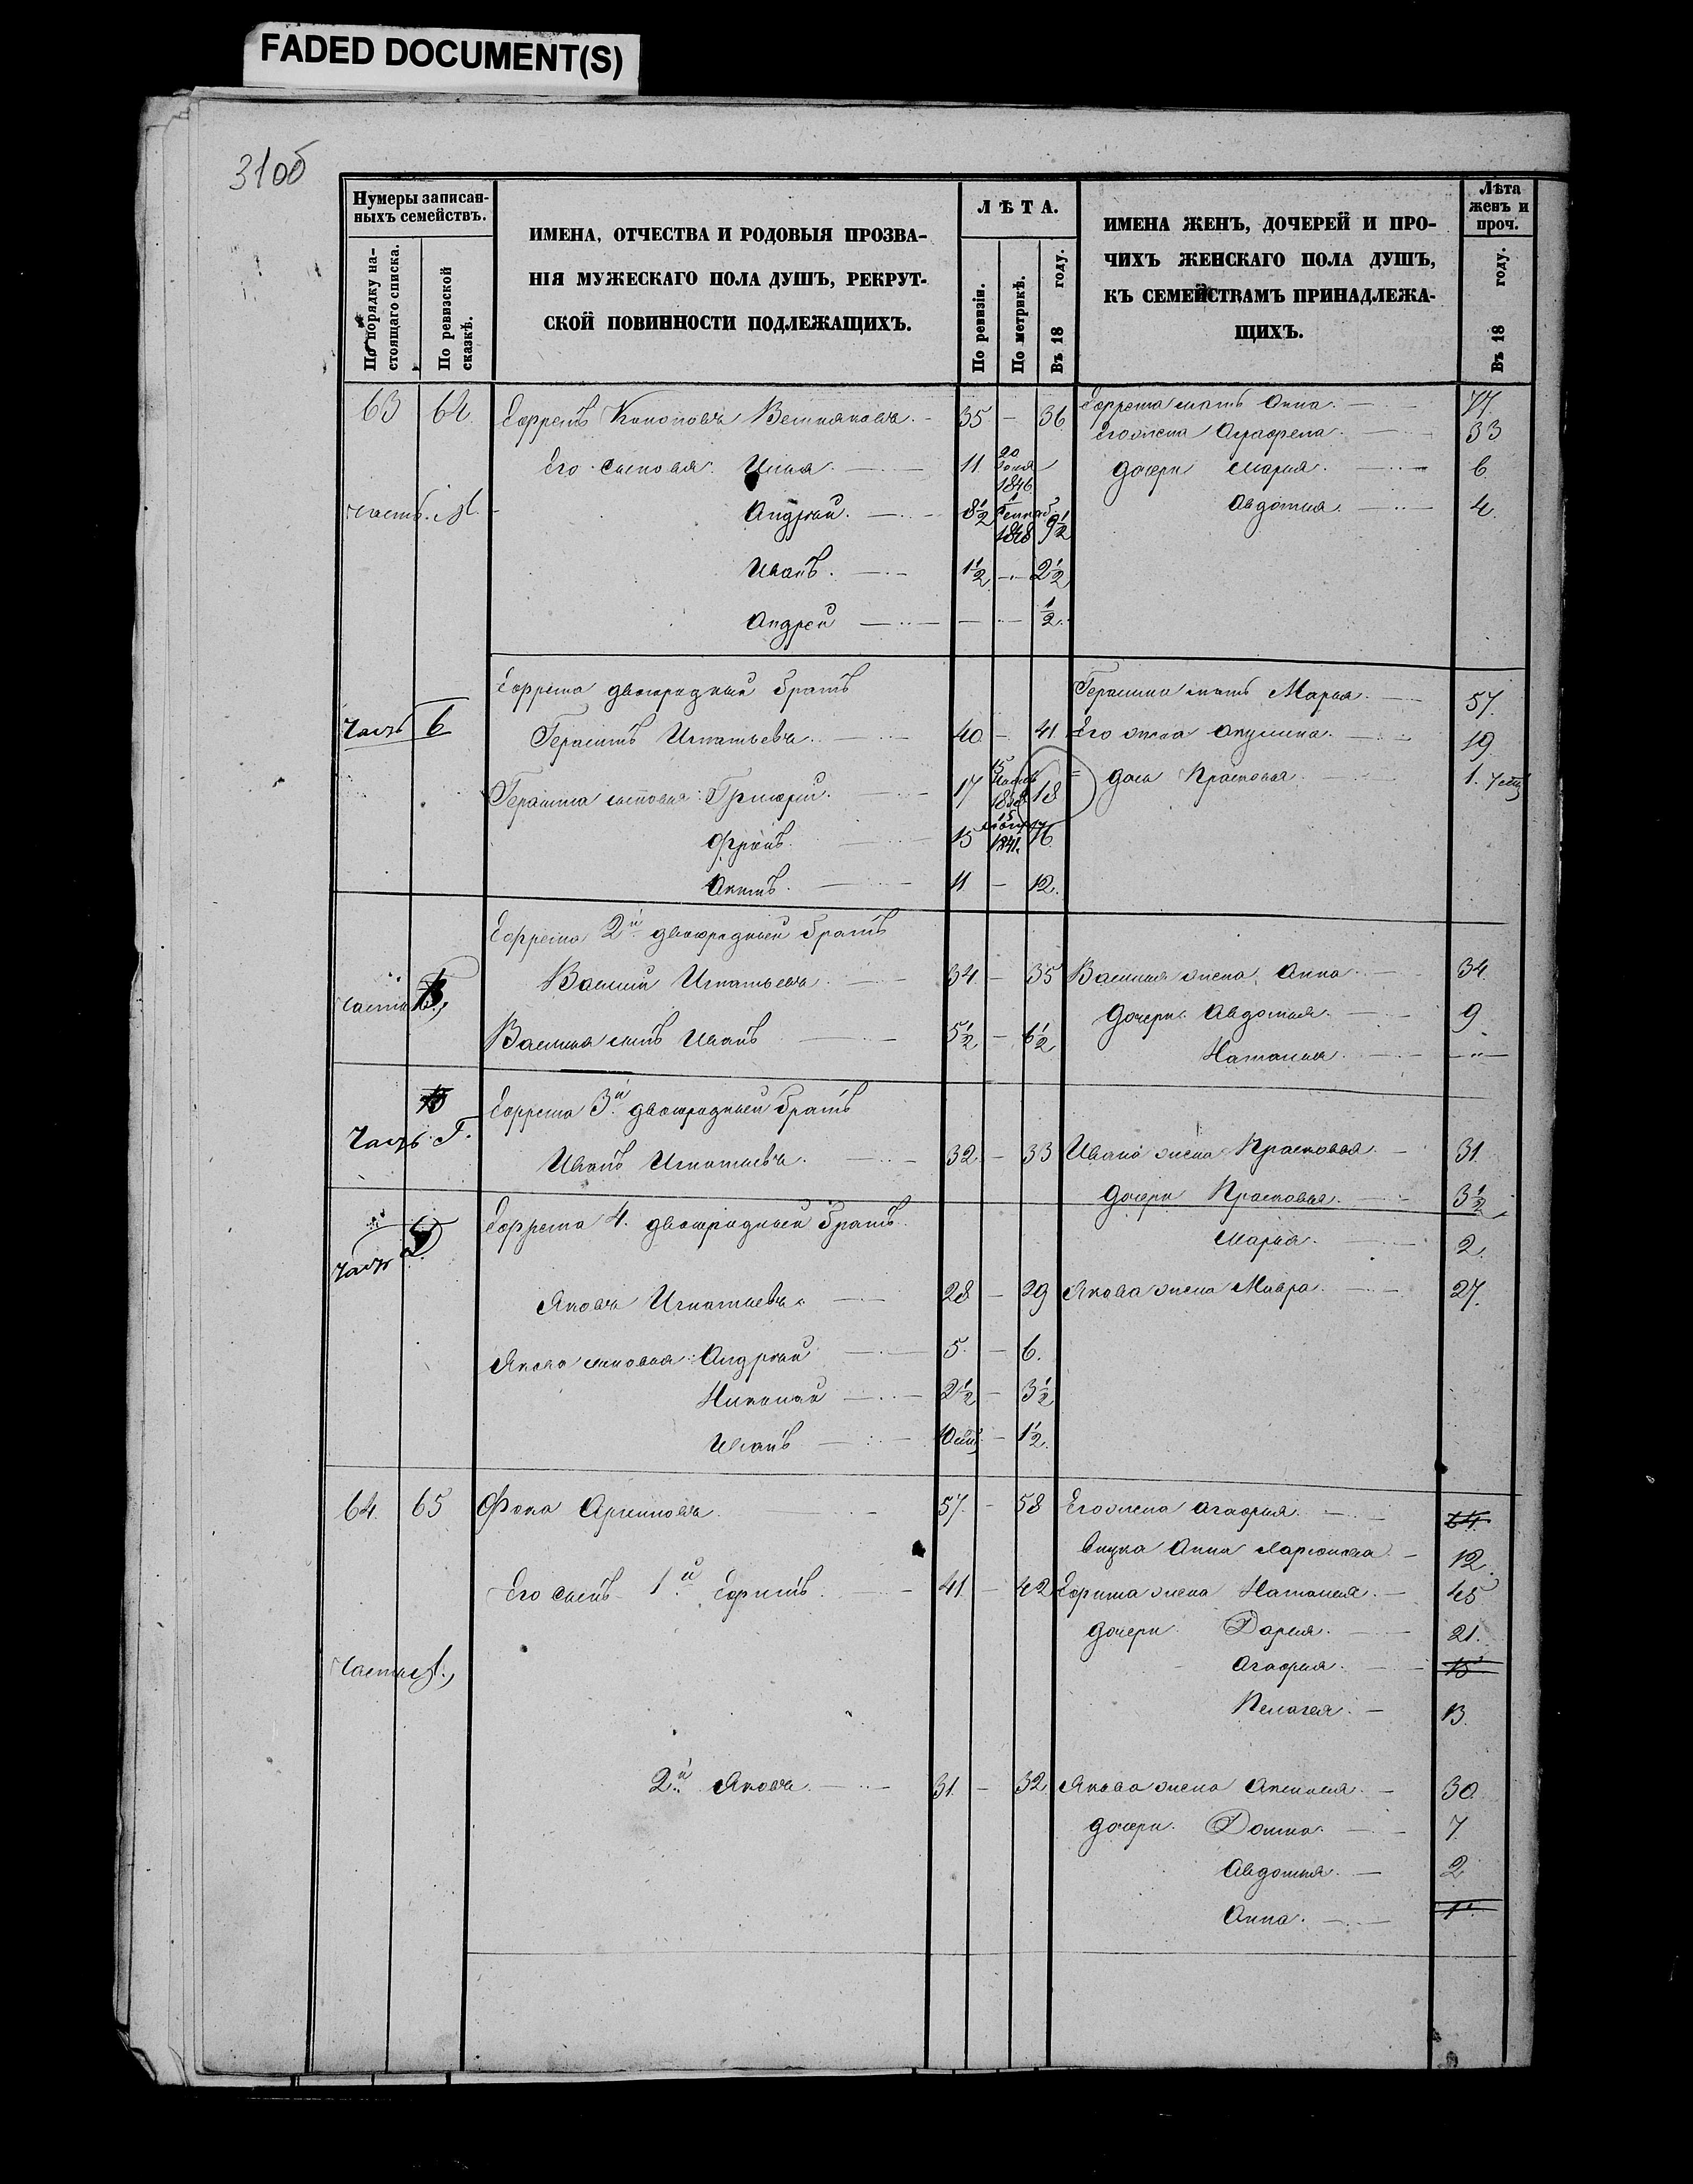 FADED DOCUMENT(S)
31об
Нумеры записан-
ныхъ семействъ.
По порядку на-
стоящаго списка.
По ревизской
сказкѣ.
ИМЕНА, ОТЧЕСТВА И РОДОВЫЯ ПРОЗВА-
НІЯ МУЖЕСКАГО ПОЛА ДУШЪ, РЕКРУТ-
СКОЙ ПОВИННОСТИ ПОДЛЕЖАЩИХЪ.
ЛѢТА.
По ревизіи.
По метрикѣ.
Въ 18 году.
ИМЕНА ЖЕНЪ, ДОЧЕРЕЙ И ПРО-
ЧИХЪ ЖЕНСКАГО ПОЛА ДУШЪ,
КЪ СЕМЕЙСТВАМЪ ПРИНАДЛЕЖА-
ЩИХЪ.
Лѣта
женъ и
проч.
Въ 18 году.
63 64. Ефремъ Кононовъ 35 – 36 Ефрема мать Анна. 77.
Его жена Аграфена. 33
Его сыновья: Илья. 11. 20 1846 дочери Марья. 6
часть А. Андрей. 8½ 1 1848 9½ Авдотья. 4.
Иванъ. 1½ – 2½
Андрей – – ½.
Ефрема двоюродный братъ Герасима мать Марья. 57.
Часть Б Герасимъ Игнатьевъ. 40 – 41. Его жена Акулина. 19
Герасима сыновья: Григорій. 17 15 18 дочь Прасковья. 1.
15 1841. 16.
11 – 12.
Ефрема 2й двоюродный братъ
часть В, Василій Игнатьевъ 34. – 35 Василья жена Анна 34.
дочери: Авдотья. 9
Василья сынъ Иванъ 5½ – 6½
Наталья.
Ефрема 3й двоюродный братъ
Часть Г. Иванъ Игнатьевъ. 32 – 33 Ивана жена Прасковья. 31.
дочери Прасковья. 3½
Ефрема 4. двоюродный братъ.
Марья. 2.
часть Д. Яковъ Игнатьевъ. 28 – 29 Якова жена Мавра. 27.
Якова сыновья: Андрей 5. – 6.
Николай 2½ – 3½
Иванъ – 1½.
64. 65 Фока 57. – 58 Его жена Агафья. 54.
внука Анна 12.
Его сынъ 1й Ефимъ. 41 – 42 Ефима жена Наталья. 45
дочери Дарья. 21.
часть А., Агафья. 15
Пелагея. 13.
2й Яковъ. 31. – 32. Якова жена Аксинья. 30.
дочери: Домна. 7.
Авдотья. 2
Анна. 1.